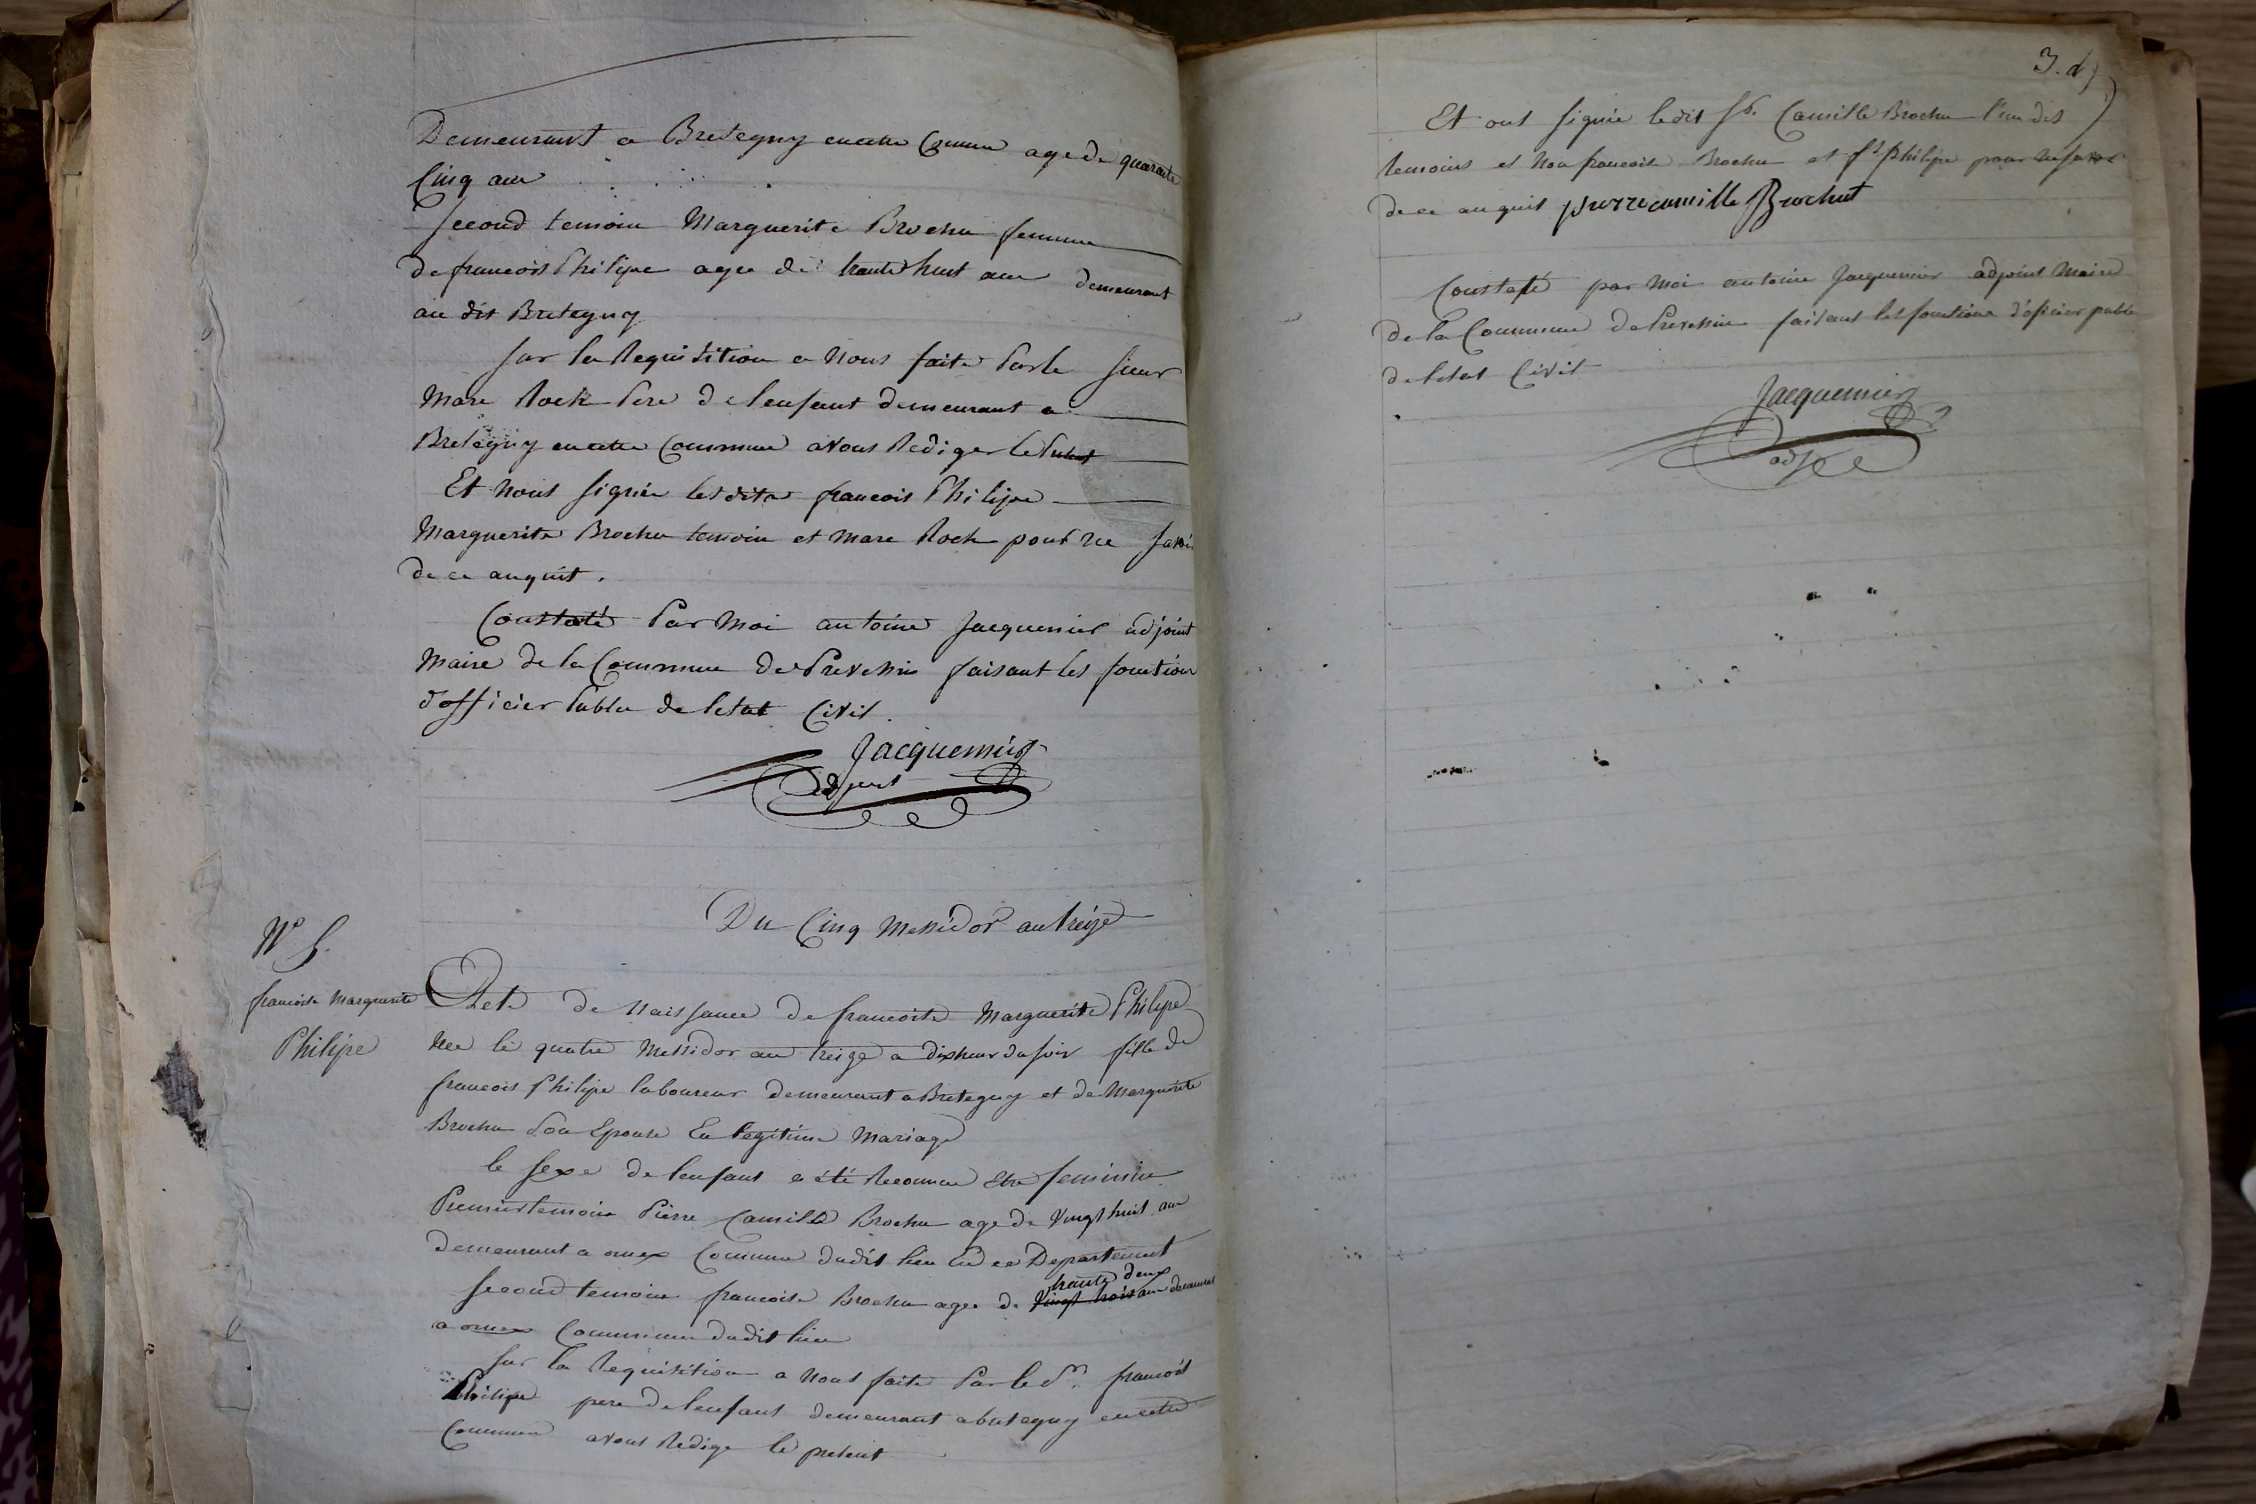 Demeurant a Bretegny en cette Comune age de quarante
Cinq ans
Second temoin Marguerite Brochu femme
de francois Philipe agee de trante huit ans demeurant
au dit Bretegny
Sur la Requisition a Nous faite Par le Sieur
Marc Rock Pere de lenfant demeurant a
Bretegny en cette Commune avons Rediger le
Et Nous Signée lesdits francois Philipe
Marguerite Brochu temoin et Marc Rock pour ne Savoir
de ce anquit.
Constaté Par Moi antoine Jacquemier adjoint
Maire de la Commune de Prevessin faisant les fonction
d'officier Public de letat Civil.
Jacquemier
adjoint
Du Cinq Messidor an treize
N° 5.
francoise Marguerite
Philipe
Acte de Naissance de francoise Marguerite Philipe
Née le quatre Messidor an treize a dix heur du soir fille de
francois Philipe laboureur demeurant a Bretegny et de Marguerite
Brochu Son Epouse En legitime Mariage
le Sexe de lenfant a été Reconnu Etre feminin
Premier temoin Pierre Camille Brochu age de Vingt huit ans
demeurant a ornex Commune dudit lieu En ce Departement
trante deux
Second temoin francoise Brochu agee de Vingt trois ans demeurant
a ornex Commune dudit lieu
Sur la Requisition a Nous faite Par le Sr. francois
Philipe pere de lenfant demeurant a bretegny en cette
Commune avons Redige le present
3. d
Et ont Signée ledit Sr. Camille Brochu l'un des
temoins et Non francoise Brochu et fs Philipe pour ne Savoir
de ce anquit pierre camille Brochut
Constaté par Moi antoine Jacquemier adjoint Maire
de la Commune de Prevessin faisant les fonctions d'oficier public
de letat Civil
Jacquemier
adj